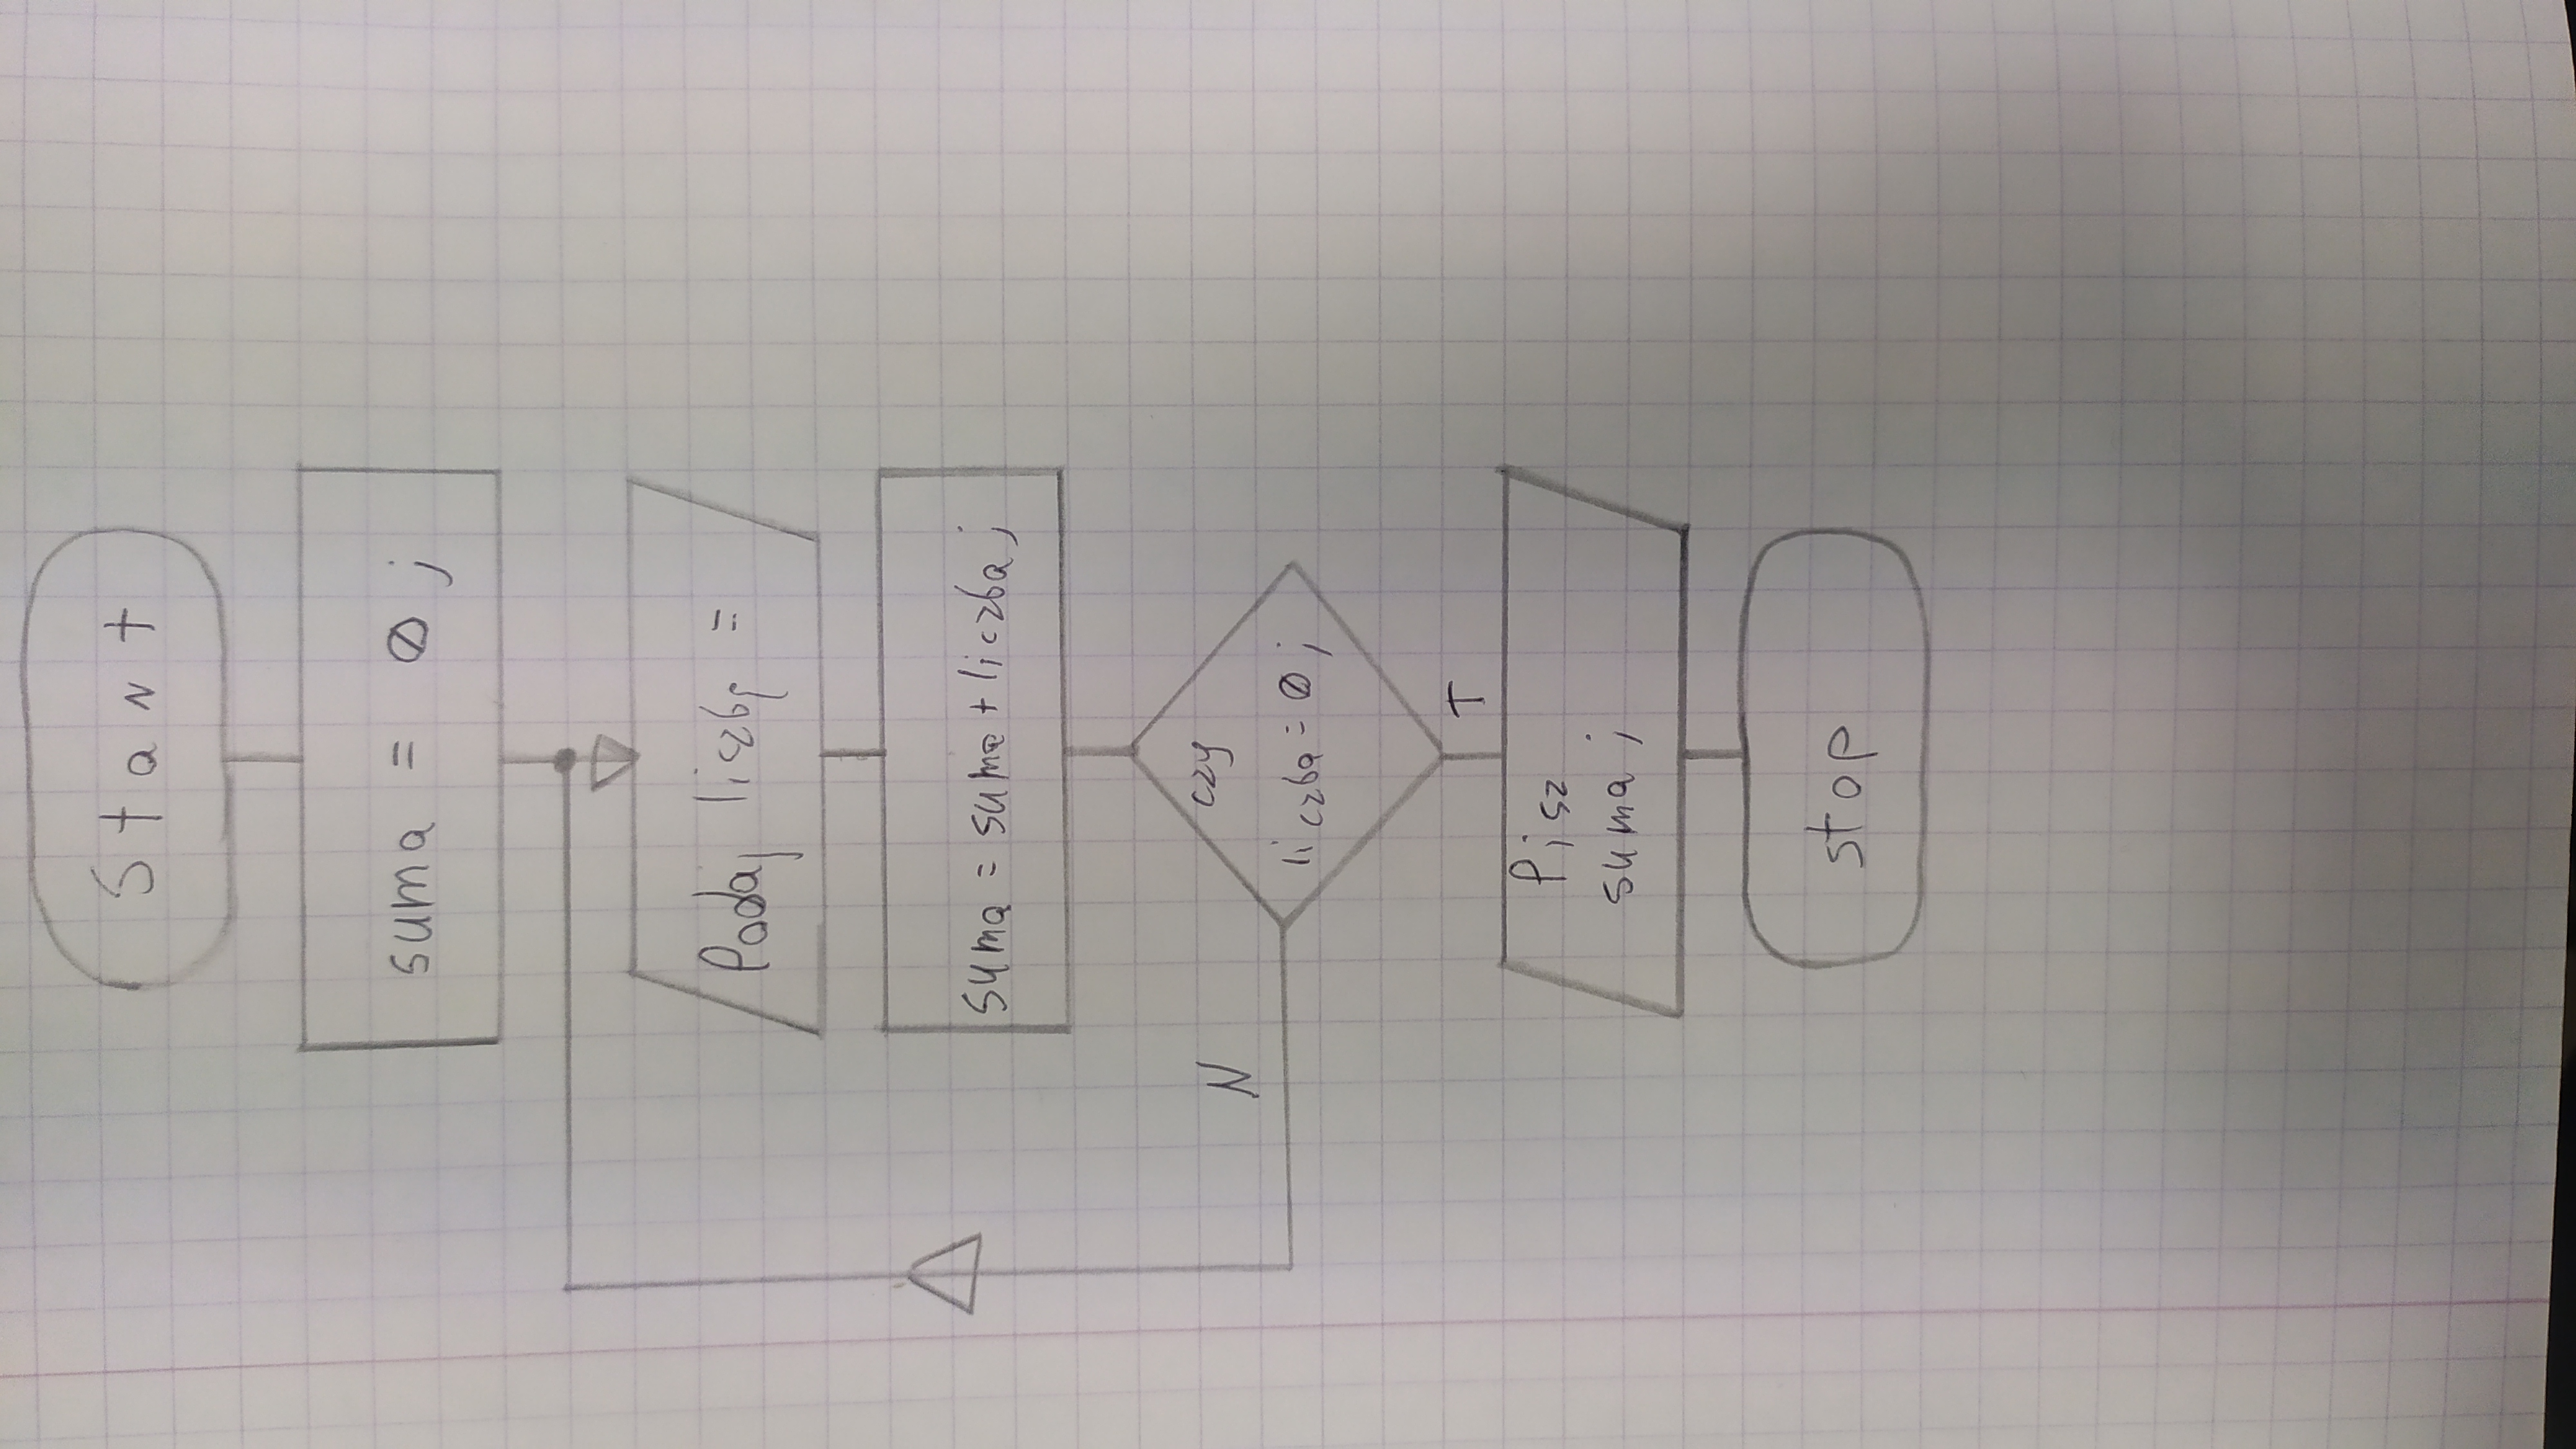 Start
suma = 0;
Podaj liczbę =
suma = suma + liczba;
czy
liczba = 0;
N
T
Pisz
suma;
stop